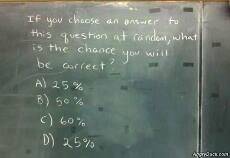 If you choose an answer to
this question at random, what
is the chance you will
be correct?
A) 25%
B) 50%
C) 60%
D) 25%
AppleJuck.com